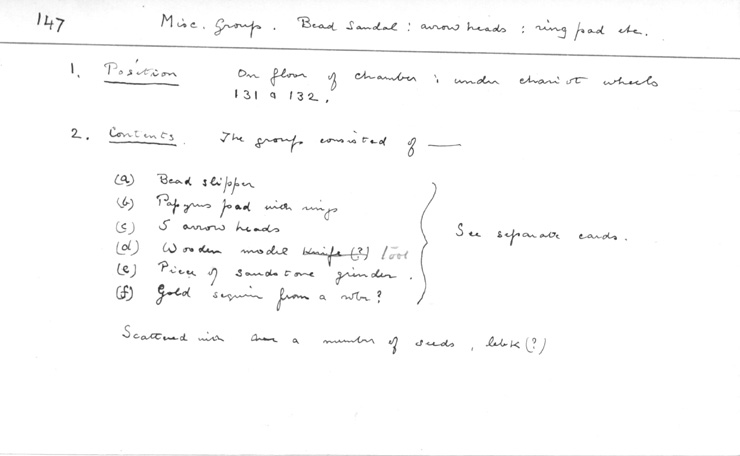 147 Misc. Group. Bead Sandal : arrow heads : ring pad etc.
1. Position On floor of chamber : under chariot wheels
131 & 132.
2. Contents. The group consisted of —
(a) Bead slipper
(b) Papyrus pad with rings
(c) 5 arrow heads
(d) Wooden model knife (?) tool
(e) Piece of sandstone grinder.
(f) Gold sequin from a robe?
See separate cards.
Scattered with them a number of seeds, (?)